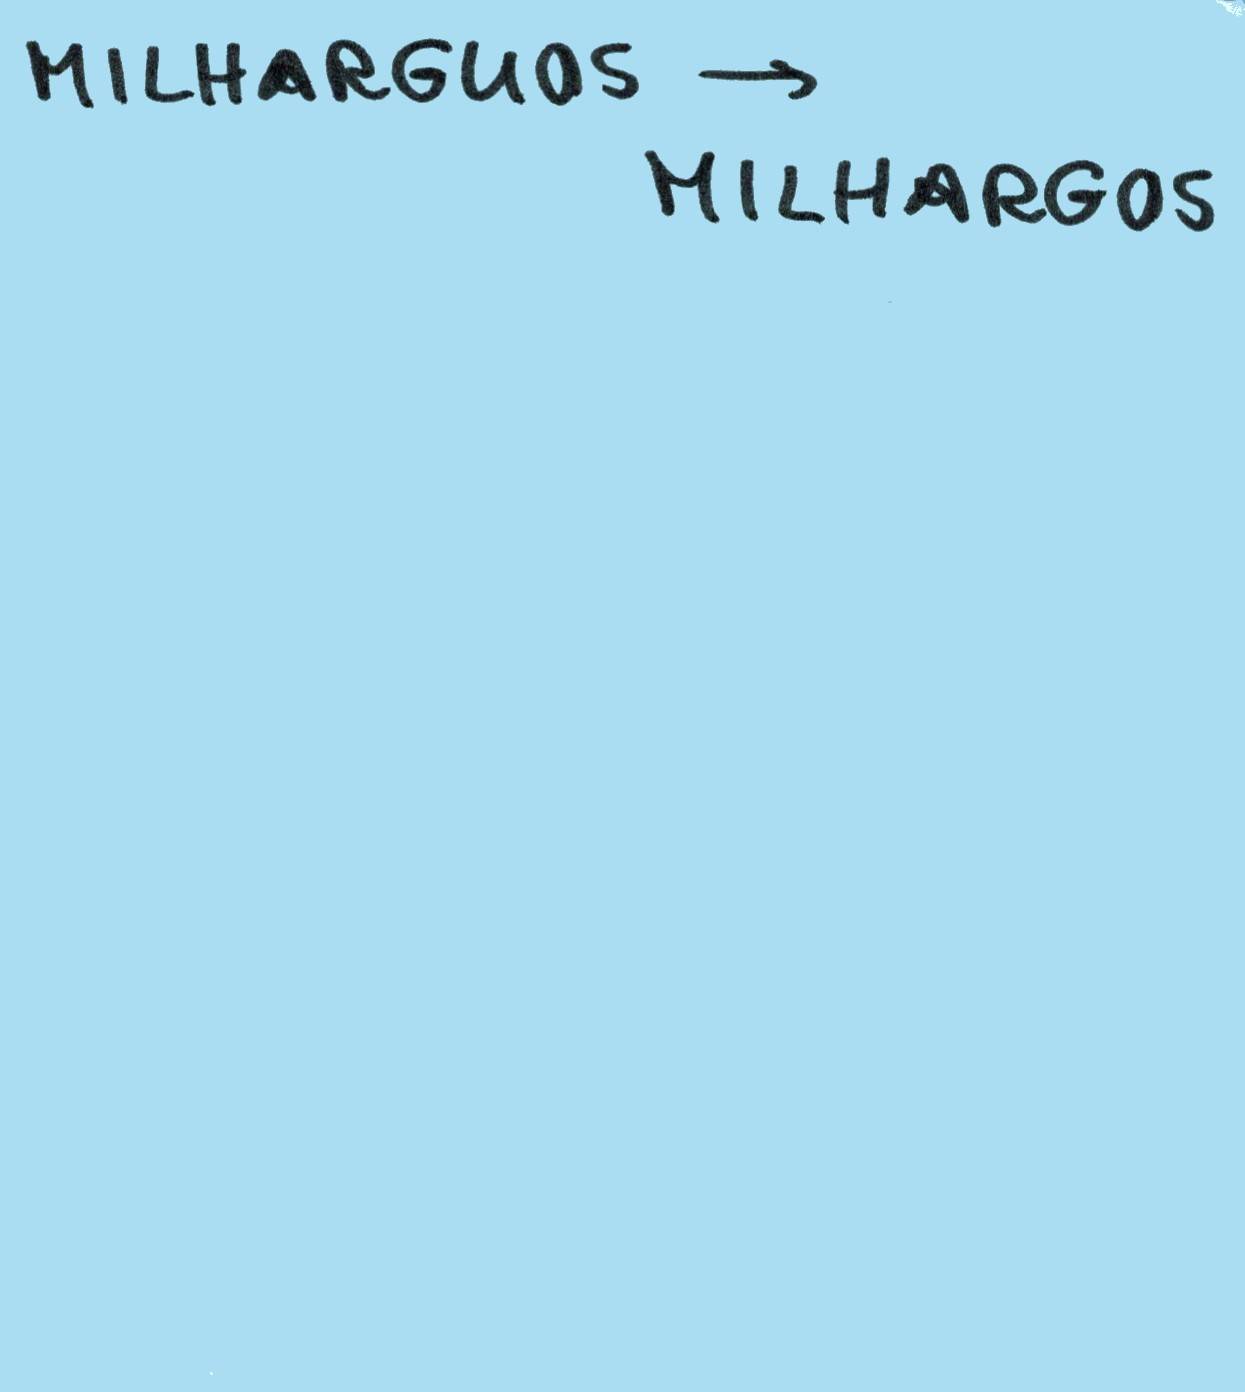 MILHARGUOS →
MILHARGOS